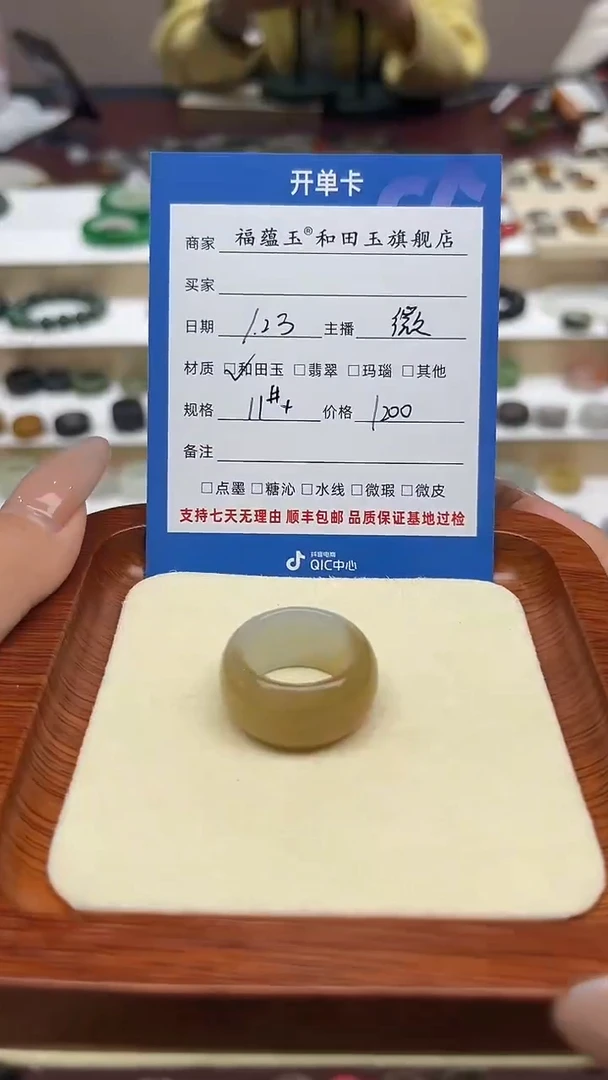 开单卡
商家 福蕴玉®和田玉旗舰店
买家
日期 1.23 主播 微
材质 ☑和田玉 □翡翠 □玛瑙 □其他
规格 11#+ 价格 1200
备注
□点墨 □糖沁 □水线 □微瑕 □微皮
支持七天无理由 顺丰包邮 品质保证基地过检
抖音电商
QIC中心